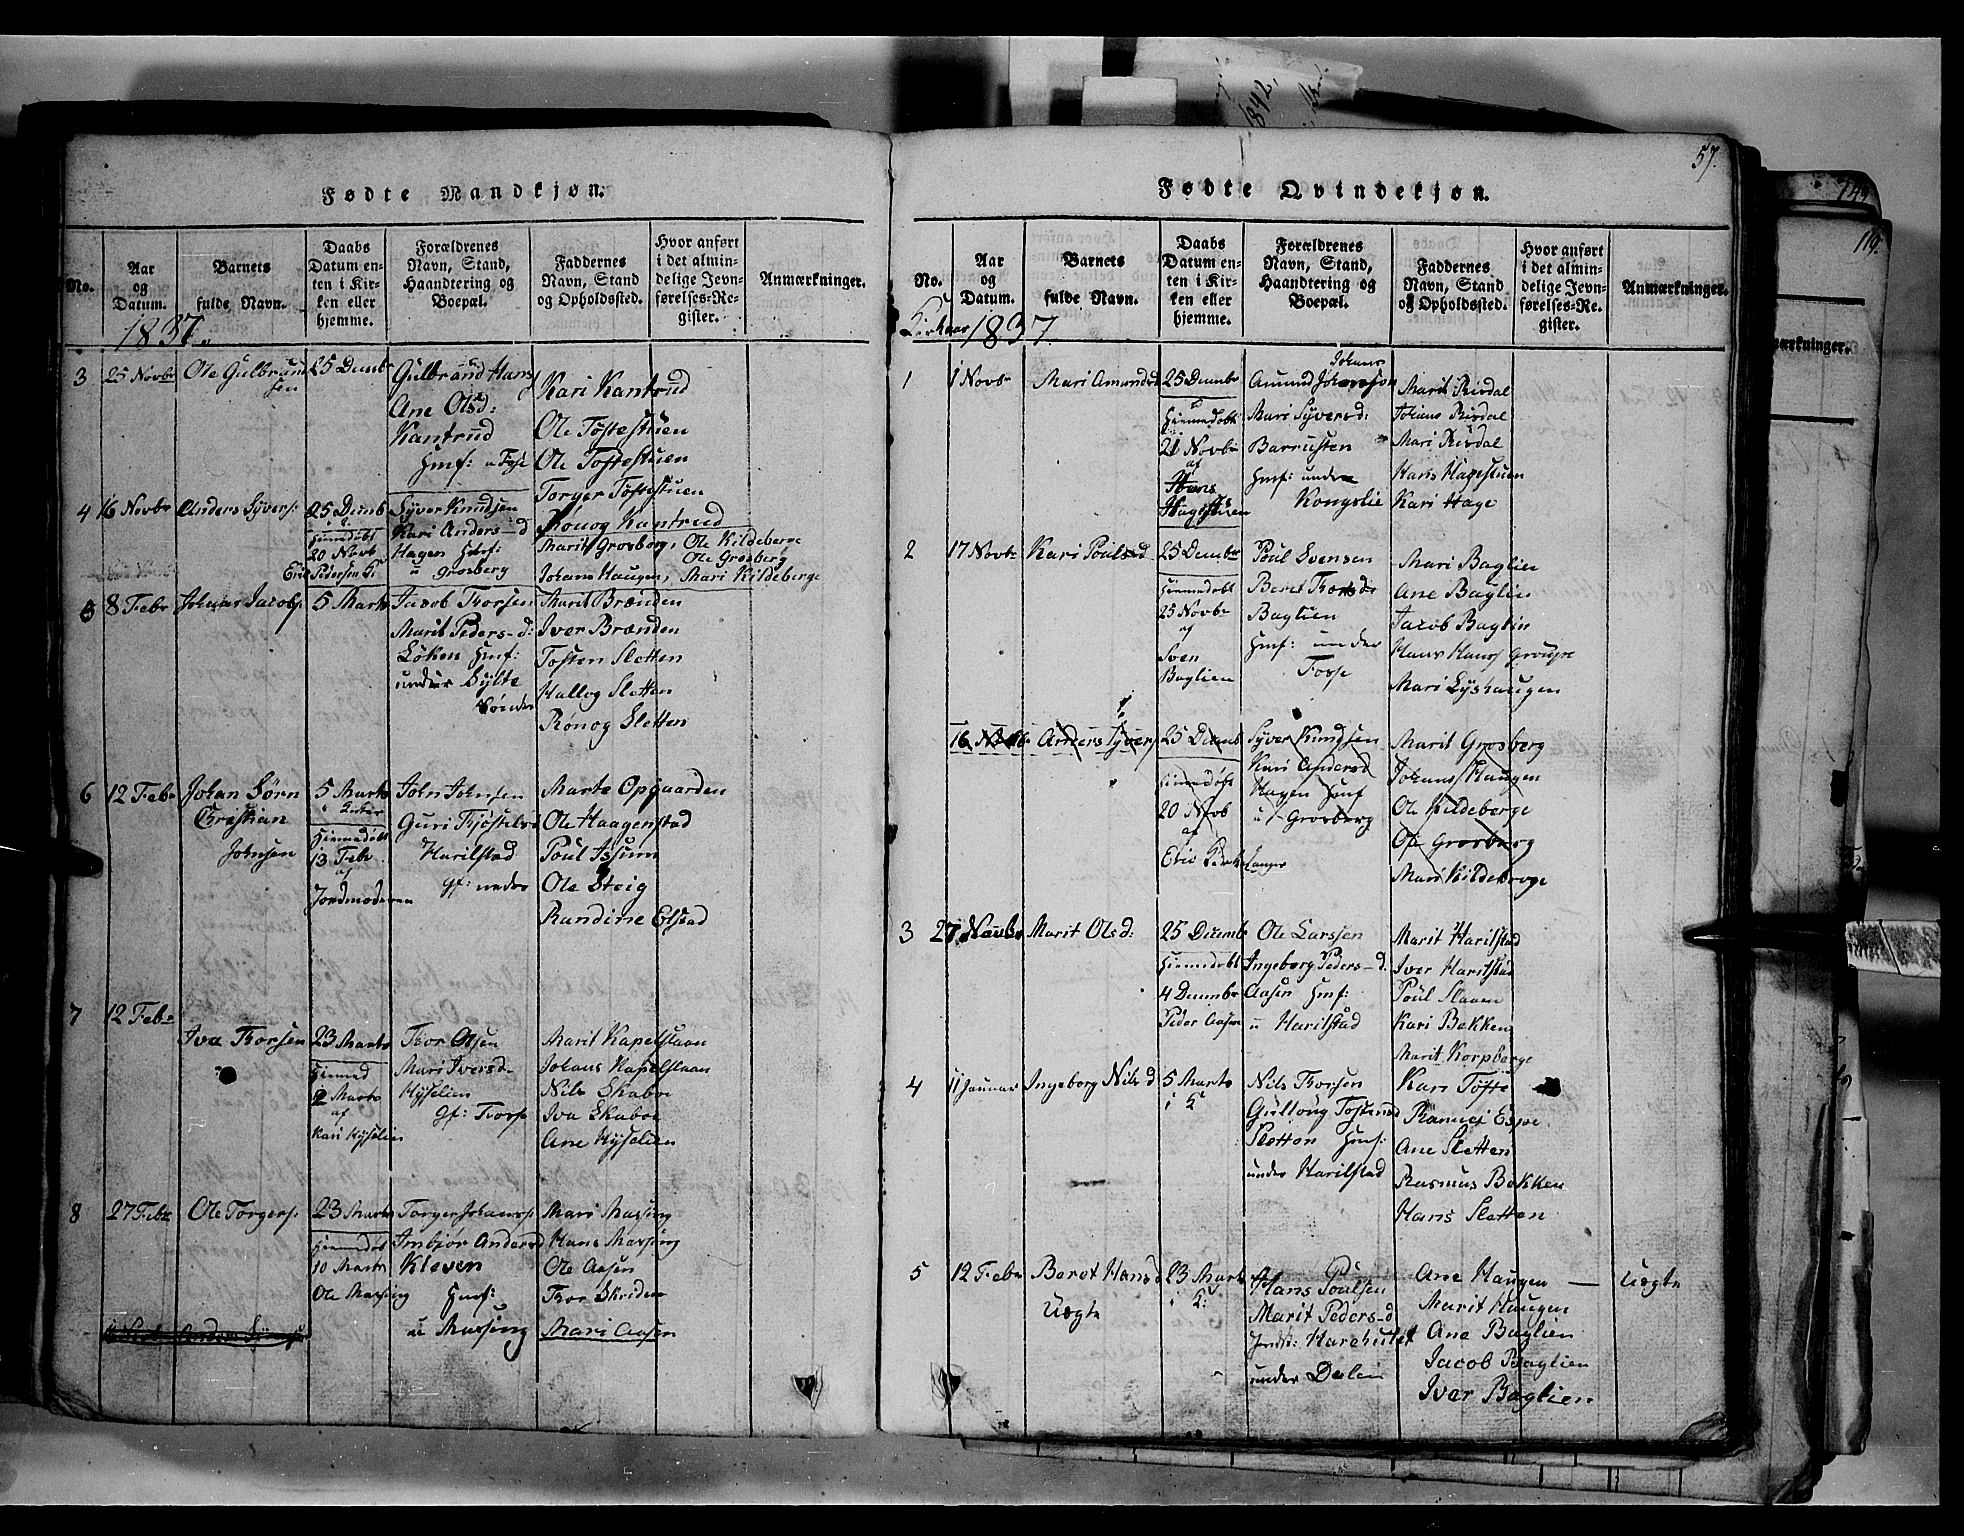 57.
Fødte Mandkjøn.
No.
Aar og Datum.
Barnets fulde Navn.
Daabs Datum enten i Kirken eller hjemme.
Forældrenes Navn, Stand, Haandtering og Boepæl.
Faddernes Navn, Stand og Opholdssted.
Hvor anført i det almindelige Jevnførelses-Register.
Anmærkninger.
1837.
3
25 Novbr
Ole Gulbrandsen
25 Decmb
Gulbrand Hans
Ane Olsd:
Kantrud
Hmf: u Fosse
Kari Kantrud
Ole Toftestuen
Ole Toftestuen
Torger Toftestuen
Rönog Kantrud
4
16 Novbr
Anders Syvers:
25 Decmb
Hiemedøbt
20 Novb
Erik Pedersen
Syver Knudsen
Kari Anders-d
Hagen Hmf:
u Grosberg
Marit Grosberg, Ole Kildeberge
Ole Grosberg
Johans Haugen, Mari Kildeberge
5
8 Febr
Johans Jacobs:
5 Marts
Jacob Thorsen
Marit Peders-d:
Löken Hmf:
under Sylte
Söndre
Marit Brænden
Iver Brænden
Tosten Sletten
Hallog Sletten
Rönog Sletten
6
12 Febr
Johan Sörn
Christian
Johnsen
5 Marts
Hiemedöbt
13 Febr
af
Jordmoderen
John Johnsen
Guri Thöstelsd
Harilstad
gf: nedre
Marte Opgaarden
Ole Haagenstad
Poul Issum
Ole Steig
Randine Elstad
7
12 Febr
Iva Thorsen
23 Marts
Hiemed
2 Marts
af
Kari Hyselien
Thor Olsen
Mari Iversd
Hyselien
gf: Thorse
Marit Kapelslaan
Johans Kapelslaan
Nils Skabo
Iva Skaboe
Ane Hyselien
8
27 Febr
Ole Torgers:
23 Marts
Hiemedöbt
10 Marts
Ole Massing
Torger Johanss:
Imbjor Andersd
Kleven
Hmf:
u Massing
Mari Massing
Hans Massing
Ole Aasen
Thor Skriden
Mari Aasen
Fødte Qvindekjøn.
No.
Aar og Datum.
Barnets fulde Navn.
Daabs Datum enten i Kirken eller hjemme.
Forældrenes Navn, Stand, Haandtering og Boepæl.
Faddernes Navn, Stand og Opholdssted.
Hvor anført i det almindelige Jevnførelses-Register.
Anmærkninger.
Kirkeaar 1837.
1
1 Novbr
Mari Amundsd
25 Decmbr
Hiemedöbt
21 Novbr
af
Hans
Hagestuen
Johans
Amund Johansson
Mari Syversd:
Barrusten
Hmf: under
Kongslie
Marit Risdal
Johans Risdal
Mari Risdal
Hans Hagestuen
Kari Hage
2
17 Novbr
Kari Poulsd
25 Decmbr
Hiemedöbt
25 Novbr
af
Sven
Baglien
Poul Svensen
Beret Thorsd:
Baglien
Hmf: under
Fosse
Mari Baglien
Ane Baglien
Jacob Baglin
Hans Hans Grouse
Mari Lyshaugen
16 Novb
Anders Syvers
25 Decmb
Hiemedöbt
20 Novb
af
Eric Kirkesanger
Syver Knudsen
Kari Andersd
Hagen Hmf
u Grosberg
Marit Grosberg
Johans Haugen
Ole Kildeberge
Ole Grosberg
Mari Kildeberge
3
27 Novbr
Marit Olsd:
25 Decmb
Hiemedöbt
4 Decmbr
Peder Aasen
Ole Larssen
Ingeborg Peders-d.
Aasen Hmf:
u Harilstad
Marit Harilstad
Iver Harilstad
Poul Slaaen
Kari Bekken
Marit Korpberge
4
11 Januar
Ingeborg Nilsd
5 Marts
i K
Nils Thorsen
Gulloug Tostensd
Sletten Hmf:
under Harilstad
Kari Tofte
Ramnei Espe
Ane Sletten
Rasmus Bekken
Hans Sletten
5
12 Febr
Beret Hansd
Uægte
23 Marts
i K:
Hans Poulsen
Marit Peders-d
Inds: Harehulet
under Dalen
Ane Haugen
Marit Haugen
Ane Baglien
Jacob Baglien
Iver Baglien
Uægte
1842,
119.
mærkninger.